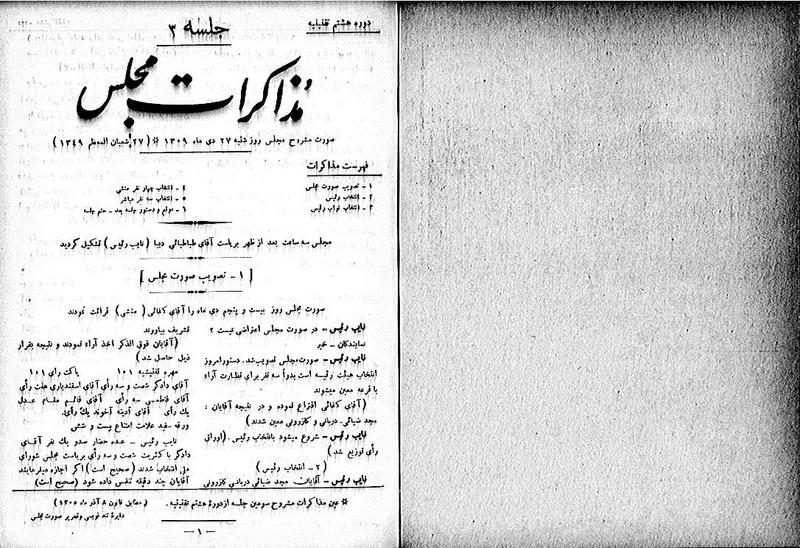 دوره هشتم تقنینیه
جلسه ۳
مذاکرات مجلس
صورت مشروح مجلس روز شنبه ۲۷ دی ماه ۱۳۰۹ ※ (۲۷ شعبان المعظم ۱۳۴۹)
فهرست مذاکرات
۱ - تصویب صورت مجلس
۲ - انتخاب رئیس
۳ - انتخاب نواب رئیس
۴ - انتخاب چهار نفر منشی
۵ - انتخاب سه نفر مباشر
۶ - موقع و دستور جلسه بعد - ختم جلسه
مجلس سه ساعت بعد از ظهر بریاست آقای طباطبائی دیبا (نایب رئیس) تشکیل گردید
[ ۱ - تصویب صورت مجلس ]
صورت مجلس روز بیست و پنجم دی ماه را آقای کفائی (منشی) قرائت نمودند
نایب رئیس - در صورت مجلس اعتراضی نیست ؟
نمایندگان - خیر
نایب رئیس - صورت مجلس تصویب شد . دستور امروز
انتخاب هیئت رئیسه است بدواً سه نفر برای نظارت آراء
با قرعه معین میشوند
(آقای کفائی اقتراع نموده و در نتیجه آقایان :
مجد ضیائی - دربانی و کازرونی معین شدند)
نایب رئیس - شروع میشود بانتخاب رئیس . (اوراق
رأی توزیع شد)
(۲ - انتخاب رئیس)
نایب رئیس - آقایان مجد ضیائی دربانی کازرونی
تشریف بیاورند
(آقایان فوق الذکر اخذ آراء نمودند و نتیجه بقرار
ذیل حاصل شد)
مهره تفتیشیه ۱۰۱ پاکت رای ۱۰۱
آقای دادگر شصت و سه رأی آقای اسفندیاری هفت رأی
آقای فاطمی سه رأی آقای قائم مقام عدل
یك رأی آقای آدینه آخوند یك رأی.
ورقه سفید علامت امتناع بیست و شش
نایب رئیس - عده حضار صدو یك نفر آقای
دادگر با کثریت شصت و سه رأی بریاست مجلس شورای
ملی انتخاب شدند (صحیح است) اگر اجازه میفرمایند
آقایان چند دقیقه تنفس داده شود (صحیح است)
※ عین مذاکرات مشروح سومین جلسه از دورهٔ هشتم تقنینیه. (مطابق قانون ۸ آذر ماه ۱۳۰۵)
دایرهٔ تند نویسی و تحریر صورت مجلس
— ۱ —